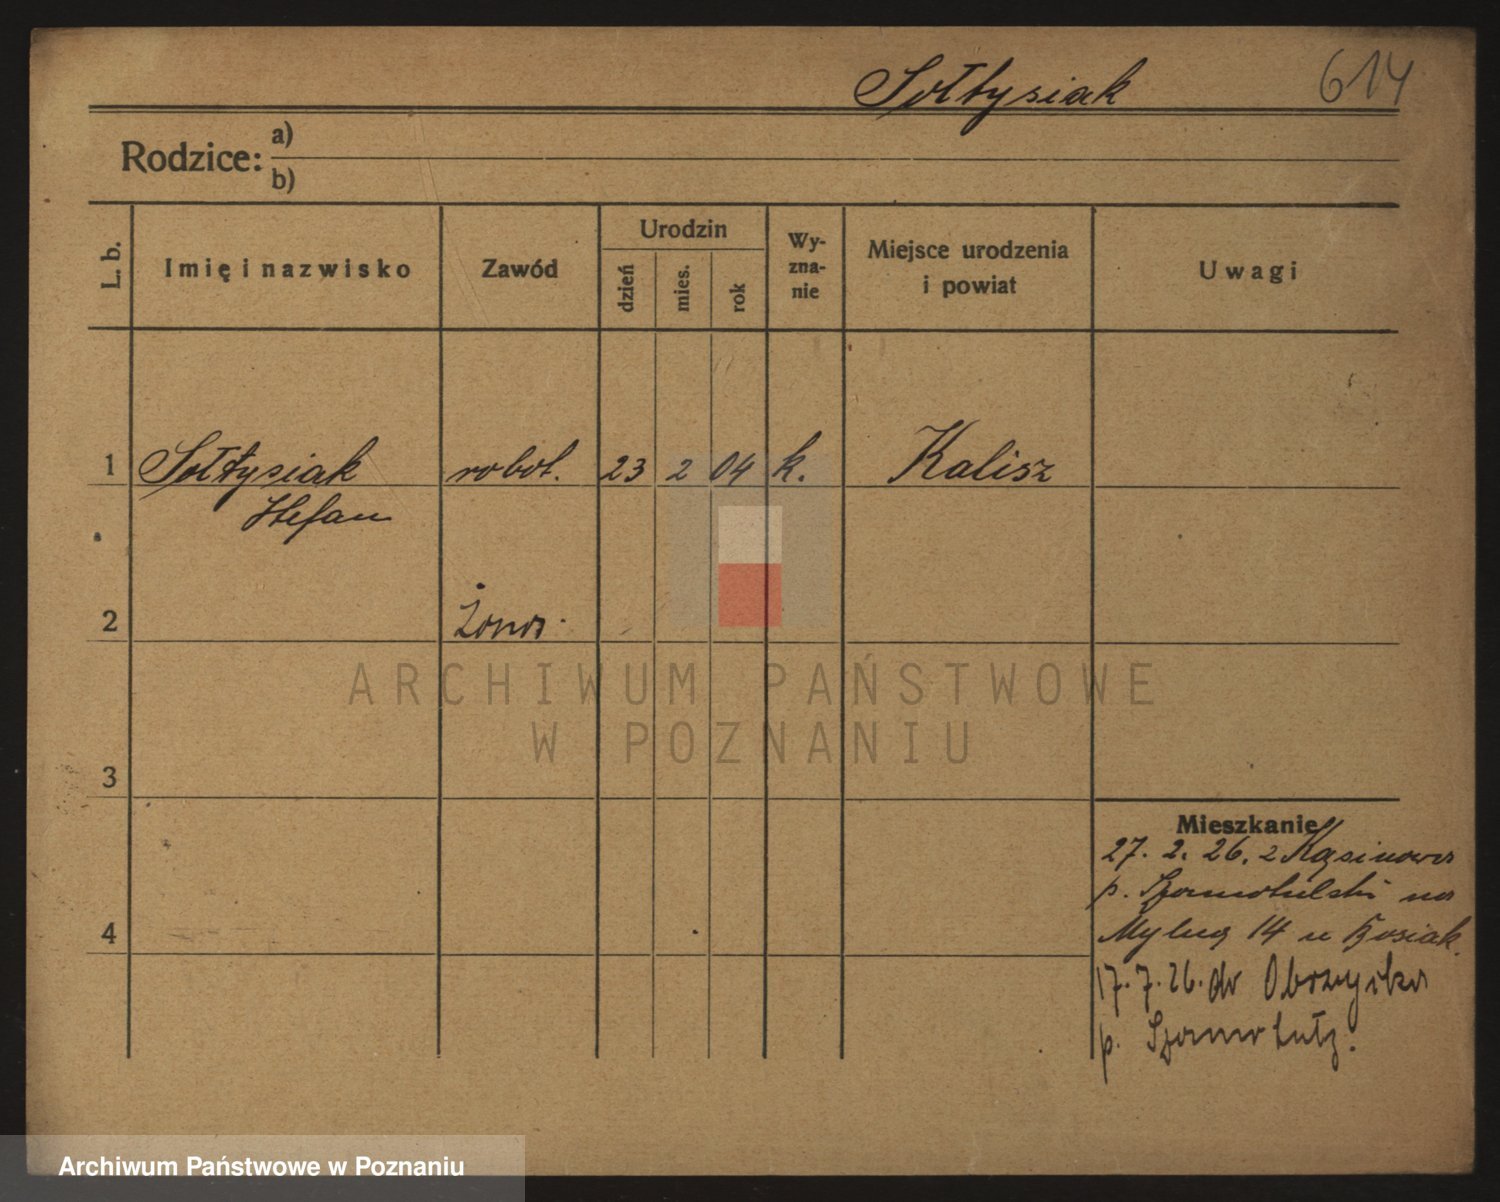 Sołtysiak 614
Rodzice: a)
b)
L. b. Imię i nazwisko Zawód Urodzin dzień mies. rok Wy-zna-nie Miejsce urodzenia i powiat Uwagi
1 Sołtysiak robot. 23 2 04 k. Kalisz
Stefan
2 Żona
3
Mieszkanie
27. 2. 26. z Kąsinowa
p. Szamotulski na
4 14 u Kosiak.
17. 7. 26. do Obrzycka
p. Szamotuły.
ARCHIWUM PAŃSTWOWE
W POZNANIU
Archiwum Państwowe w Poznaniu